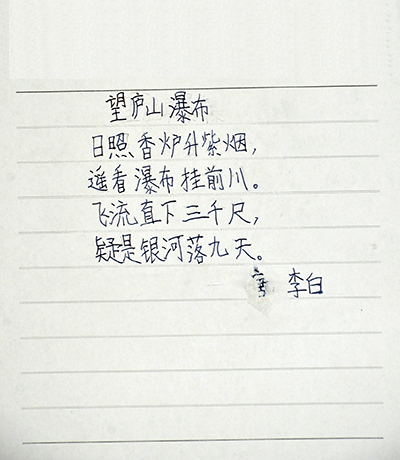 望庐山瀑布
日照香炉升紫烟，
遥看瀑布挂前川。
飞流直下三千尺，
疑是银河落九天。
李白